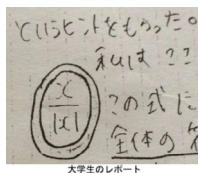 というヒントをもらった。
私は??
x/|x| この式に
全体の
大学生のレポート